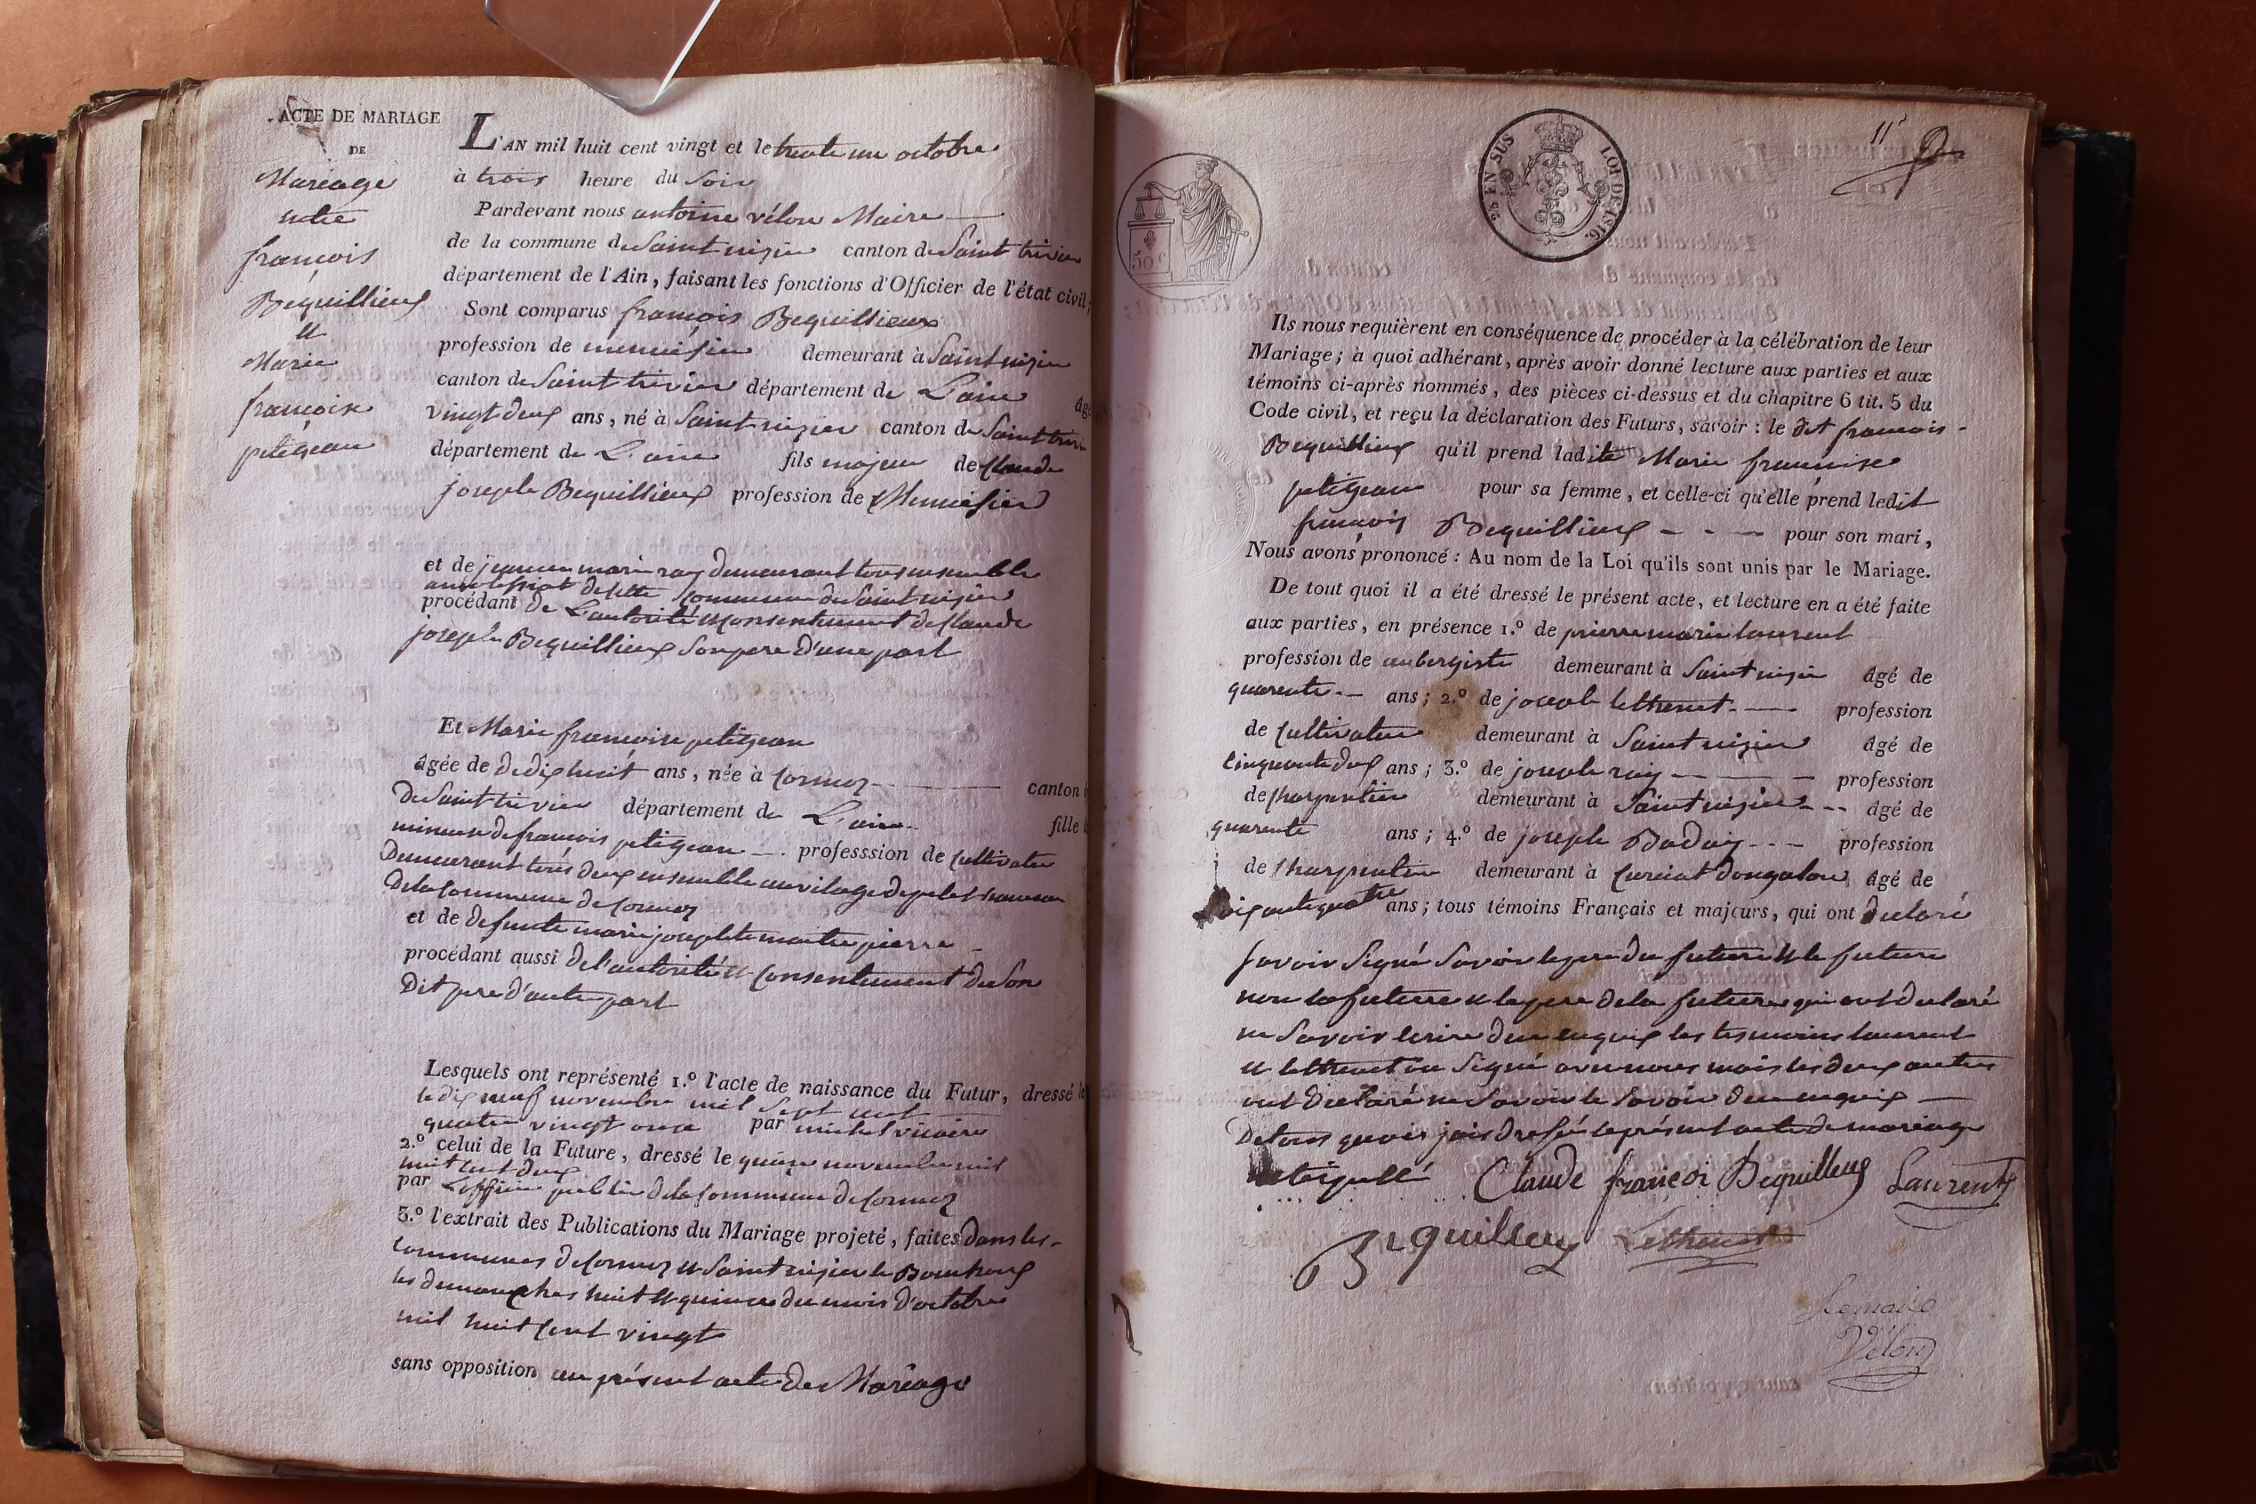 ACTE DE MARIAGE
DE
Mariage
entre
françois
Bequillieux
et
Marie
françoise
petigean
L'AN mil huit cent vingt et le trente un octobre
à trois heure du soir
Pardevant nous antoine vélon Maire
de la commune de Saint nizier canton de Saint trivier
département de l'Ain, faisant les fonctions d'Officier de l'état civil;
Sont comparus françois Bequillieux
profession de menuisier demeurant à Saint nizier
canton de Saint trivier département de L'ain âgé
vingt deux ans, né à Saint nizier canton de Saint trivier
département de L'ain fils majeur de Claude
joseph Bequillieux profession de Menuisier
et de jeanne marie ray demeurant tous ensemble
de cette commune de Saint nizier
procédant de L'autorité et consentement de Claude
joseph Bequillieux son pere d'une part
Et Marie françoise petigean
âgée de de dix huit ans, née à Cormoz canton
de Saint trivier département de L'ain fille
mineure de françois petigean professsion de Cultivateur
demeurant tous deux ensemble au vilage de
de la Commune de Cormoz
et de defunte marie josephte maitre pierre
procédant aussi de l'autorité et Consentement de son
dit pere d'autre part
Lesquels ont représenté 1.º l'acte de naissance du Futur, dressé le
le dix neuf novembre mil sept cent
quatre vingt onze par michel vicaire
2.º celui de la Future, dressé le quinze novembre mil
huit cent deux
par L'officier public de la Commune de Cormoz
3.º l'extrait des Publications du Mariage projeté, faites dans les
communes de Cormoz et Saint nizier le Bouchoux
les dimanches huit et quinze du mois d'octobre
mil huit cent vingt
sans opposition au présent acte de Mariage
25 EN SUS LOI DE 1816.
50 C
11
Ils nous requièrent en conséquence de procéder à la célébration de leur
Mariage; à quoi adhérant, après avoir donné lecture aux parties et aux
témoins ci-après nommés, des pièces ci-dessus et du chapitre 6 tit. 5 du
Code civil, et reçu la déclaration des Futurs, savoir: le dit françois
Bequillieux qu'il prend ladite Marie françoise
petigean pour sa femme, et celle-ci qu'elle prend ledit
françois Bequillieux pour son mari,
Nous avons prononcé: Au nom de la Loi qu'ils sont unis par le Mariage.
De tout quoi il a été dressé le présent acte, et lecture en a été faite
aux parties, en présence 1.º de pierre marie laurent
profession de aubergiste demeurant à Saint nizier âgé de
quarente ans; 2.º de joseph lethenet profession
de Cultivateur demeurant à Saint nizier âgé de
Cinquante deux ans; 3.º de joseph ray profession
de Charpentier demeurant à Saint nizier âgé de
quarente ans; 4.º de joseph Baday profession
de Charpentier demeurant à Curciat dongalon âgé de
soixante quatre ans; tous témoins Français et majeurs, qui ont declaré
savoir signé savoir le pere du future et le future
non la future et le pere de la future qui ont declaré
ne savoir ecrire de ce enquis les tesmoins laurent
et lethenet on signé avec nous mais les deux autres
ont declaré ne savoir le savoir de ce enquis
de tous quoi j'ais dressé le présent acte de mariage
Claude françoi Bequilleux Laurent
Bequilleux Lethenet
Le maire
Vélon